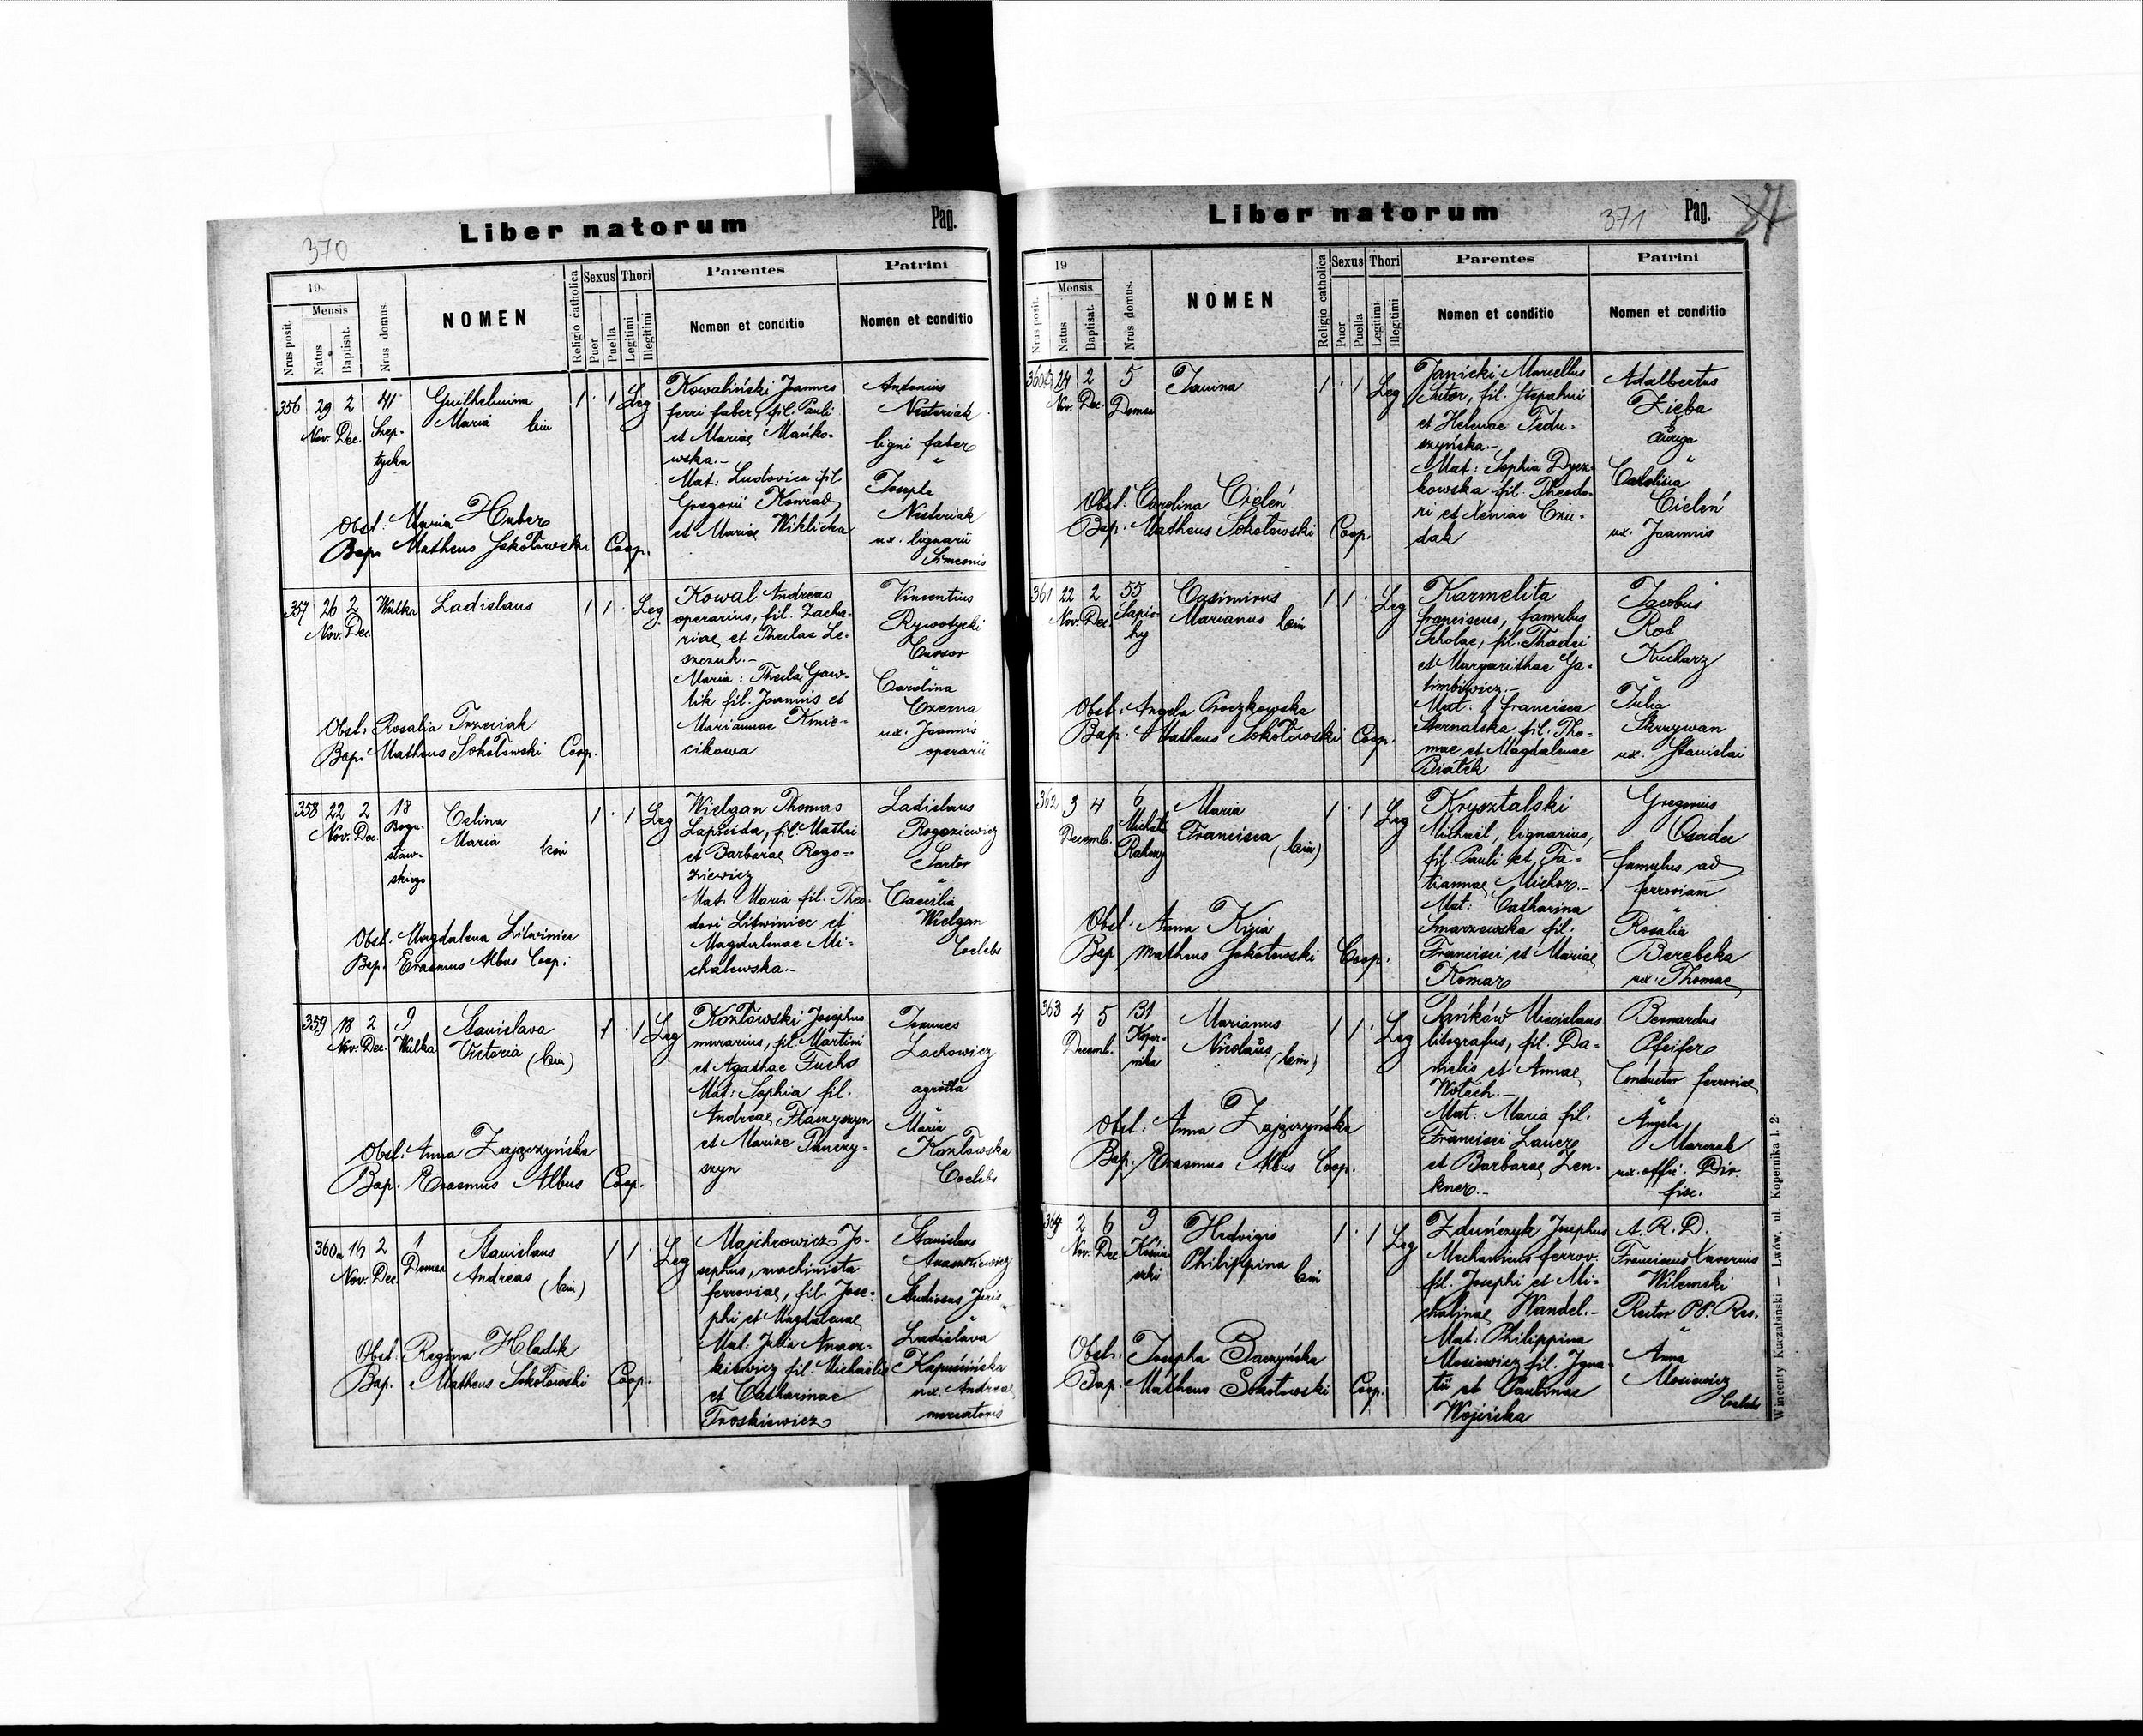 370
Liber natorum
Pag.
19
Mensis
Nrus posit.
Natus
Baptisat.
Nrus domus.
NOMEN
Religio catholica
Sexus
Puer
Puella
Thori
Legitimi
Illegitimi
Parentes
Nomen et conditio
Patrini
Nomen et conditio
356 29 2 41 Guilhelmina 1 . 1 Leg
Nov. Dec. Szep-
tycka
Maria bin
Kowaliński Joannes
ferri faber, fil. Pauli
et Mariae Mańko-
wska.-
Mat: Ludovica fil.
Gregorii Konrad
et Mariae Wiklicka
Antonius
Nesteriak
ligni faber
Josepha
Nesteriak
ux. lignarii
Simeonis
Obst: Maria Huber
Bap. Matheus Sokołowski Coop.
357 26 2 Wulka Ladislaus 1 1 . Leg
Nov. Dec.
Kowal Andreas
operarius, fil. Zacha-
riae et Theclae Le-
szczuk.-
Maria: Thecla Gaw-
lik fil. Joannis et
Mariannae Kmie-
cikowa
Vincentius
Rywotycki
Cursor
Carolina
Czerna
ux. Joannis
operarii
Obst: Rosalia Trzeciak
Bap. Matheus Sokołowski Coop.
358 22 2 18 Celina 1 . 1 Leg
Nov. Dec. Bogu-
sław-
skiego
Maria bin
Wielgan Thomas
Lapicida, fil. Mathei
et Barbarae Rogo-
ziewicz
Mat. Maria fil. Theo-
dori Litwiniec et
Magdalenae Mi-
chalewska.-
Ladislaus
Rogoziewicz
Sartor
Caecilia
Wielgan
Coelebs
Obst. Magdalena Litwiniec
Bap. Erasmus Albus Coop.
359 18 2 9 Stanislava 1 . 1 Leg
Nov. Dec. Wulka Victoria (bin)
Kozłowski Josephus
murarius, fil. Martini
et Agathae Fuchs
Mat: Sophia fil.
Andreae Tkaczyszyn
et Mariae Panczy-
szyn
Joannes
Lachowicz
agricola
Maria
Kozłowska
Coelebs
Obst. Anna Zajączyńska
Bap. Erasmus Albus Coop.
360a 16 2 1 Stanislaus 1 1 . Leg
Nov. Dec. Domsa
Andreas (bin)
Majchrowicz Jo-
sephus, machinista
ferroviae, fil. Jose-
phi et Magdalenae
Mat: Julia Anasz-
kiewicz fil. Michaelis
et Catharinae
Troskiewicz
Stanislaus
Anaszkiewicz
Studiosus Juris
Ladislava
Kapuścińska
ux. Andreae
mercatoris
Obst. Regina Hladik
Bap. Matheus Sokołowski Coop.
Liber natorum
371
Pag.
19
Mensis
Nrus posit.
Natus
Baptisat.
Nrus domus.
NOMEN
Religio catholica
Sexus
Puer
Puella
Thori
Legitimi
Illegitimi
Parentes
Nomen et conditio
Patrini
Nomen et conditio
360b 24 2 5 Janina 1 . 1 Leg
Nov. Dec. Domsa
Janicki Marcellus
Sutor, fil. Stepahni
et Helenae Fedu-
szyńska.-
Mat: Sophia Dycz-
kowska fil. Theodo-
ri et Xeniae Czu-
dak
Adalbertus
Zięba
Auriga
Carolina
Cieleń
ux. Joannis
Obst: Carolina Cieleń
Bap. Matheus Sokołowski Coop.
361 22 2 55 Casimirus 1 1 . Leg
Nov. Dec. Sapie-
hy
Marianus bin
Karmelita
Franciscus, famulus
Scholae, fil. Thadei
et Margarithae Ga-
limbiwicz.-
Mat: Francisca
Sternalska fil. Tho-
mae et Magdalenae
Białek
Jacobus
Roś
Kucharz
Julia
Skrzywan
ux. Stanislai
Obst: Angela Proczkowska
Bap. Matheus Sokołowski Coop.
362 3 4 6 Maria 1 . 1 Leg
Decemb. Michała
Francisca (bin)
Krysztalski
Michaël, lignarius,
fil. Pauli et Ta-
tiannae Michor.-
Mat: Catharina
Smarzewska fil.
Francisci et Mariae
Komar
Gregorius
Osadec
famulus ad
ferroviam
Rosalia
Berebeka
ux. Thomae
Obst. Anna Kizia
Bap. Matheus Sokołowski Coop.
363 4 5 31 Marianus 1 1 . Leg
Decemb. Koper-
nika
Nicolaus (bin)
Pańków Miecislaus
litografus, fil. Da-
nielis et Annae
Wołoch.-
Mat: Maria fil.
Francisci Laucz
et Barbarae Zen-
kner.-
Bernardus
Pfeifer
Conductor ferroviae
Angela
Marczuk
ux. offic. Dir.
fisc.
Obst. Anna Zajączyńska
Bap. Erasmus Albus Coop.
364 2 6 9 Hedvigis 1 . 1 Leg
Nov. Dec.
Philippina bin
Zduńczyk Josephus
Mechanicus ferrov.
fil. Josephi et Mi-
chalinae Wandel.-
Mat: Philippina
Mosiewicz fil. Igna-
tii et Paulinae
Wojcicka
A. R. D.
Franciscus Xaverius
Wilemski
Rector PP. Res.
Anna
Mosiewicz
Coelebs
Obst. Josepha Baczyńska
Bap. Matheus Sokołowski Coop.
Wincenty Kuczabiński — Lwów, ul. Kopernika l. 2.